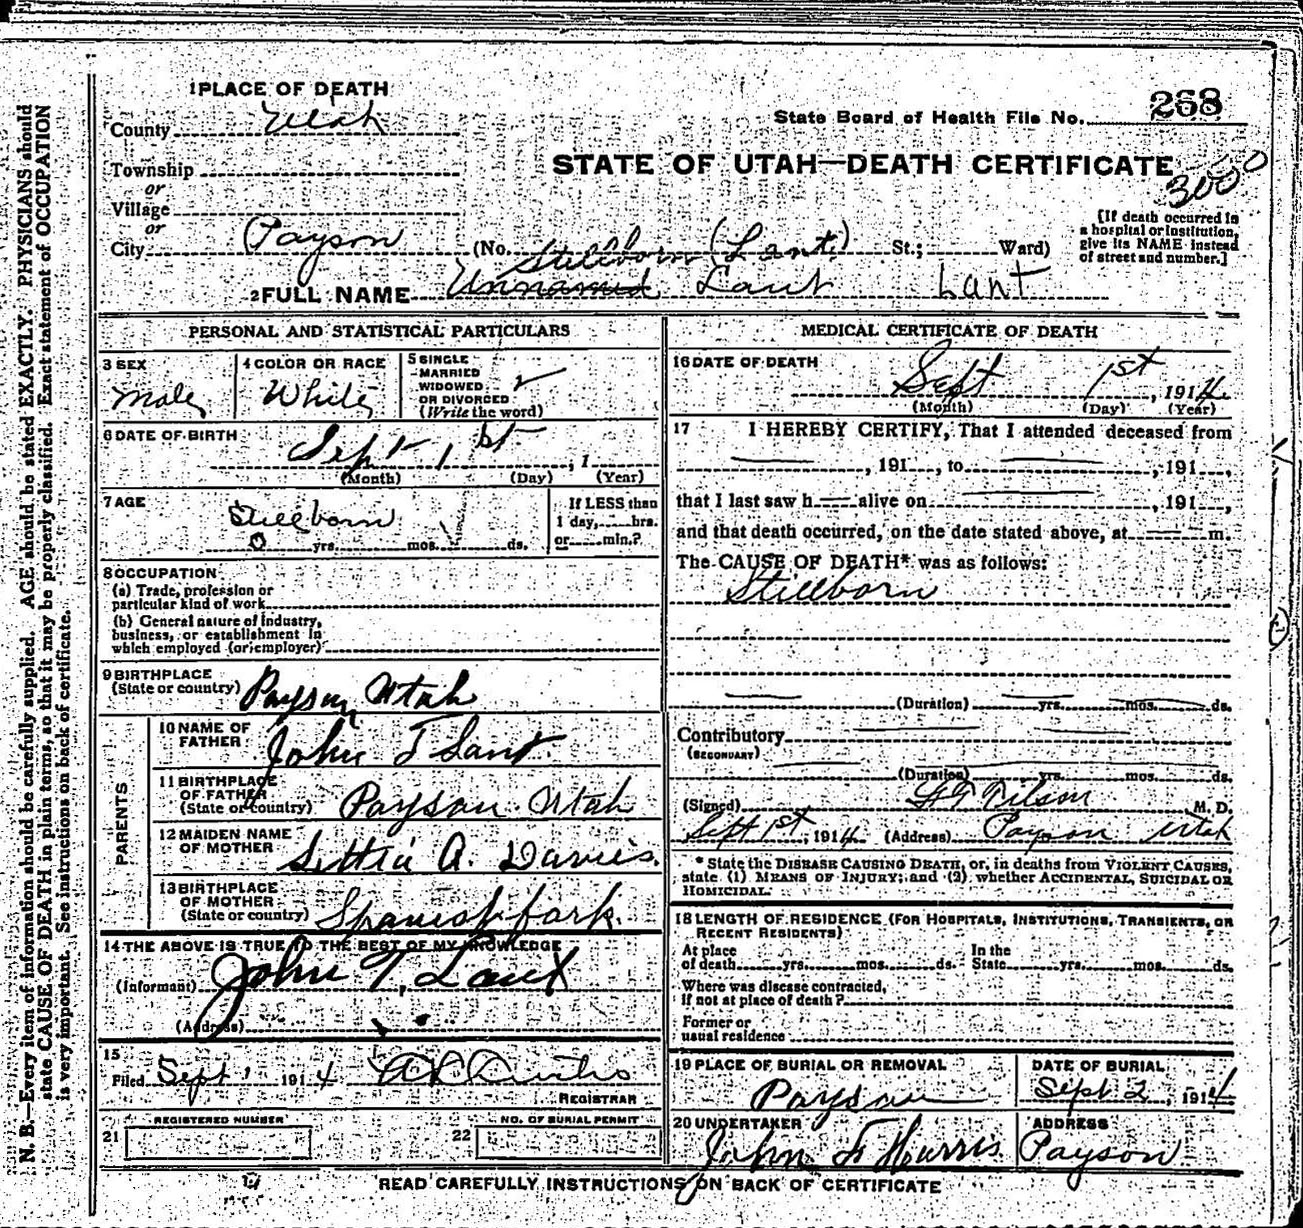 1 PLACE OF DEATH
County Utah
Township
or
Village
or
City Payson (No. Stillborn (Lant) St.; Ward)
State Board of Health File No. 268
STATE OF UTAH—DEATH CERTIFICATE
3000
[If death occurred in
a hospital or institution,
give its NAME instead
of street and number.]
2 FULL NAME Unnamed Lant Lant
PERSONAL AND STATISTICAL PARTICULARS
3 SEX
Male
4 COLOR OR RACE
White
5 SINGLE
MARRIED
WIDOWED
OR DIVORCED
(Write the word)
6 DATE OF BIRTH
Sept 1st, 1
(Month) (Day) (Year)
7 AGE
Stillborn
0 yrs. mos. ds.
If LESS than
1 day, hrs.
or min.?
8 OCCUPATION
(a) Trade, profession or
particular kind of work
(b) General nature of industry,
business, or establishment in
which employed (or employer)
9 BIRTHPLACE
(State or country) Payson Utah
PARENTS
10 NAME OF
FATHER John T Lant
11 BIRTHPLACE
OF FATHER
(State or country) Payson Utah
12 MAIDEN NAME
OF MOTHER A. Davies.
13 BIRTHPLACE
OF MOTHER
(State or country) Spanish fork.
14 THE ABOVE IS TRUE TO THE BEST OF MY KNOWLEDGE
(Informant) John T. Lant
(Address)
15
Filed Sept 1 1914
REGISTRAR
REGISTERED NUMBER
21
NO. OF BURIAL PERMIT
22
MEDICAL CERTIFICATE OF DEATH
16 DATE OF DEATH
Sept 1st, 1914
(Month) (Day) (Year)
17 I HEREBY CERTIFY, That I attended deceased from
, 191 , to , 191 ,
that I last saw h alive on , 191 ,
and that death occurred, on the date stated above, at m.
The CAUSE OF DEATH* was as follows:
Stillborn
(Duration) yrs. mos. ds.
Contributory
(SECONDARY)
(Duration) yrs. mos. ds.
(Signed) Wilson M. D.
Sept 1st, 1914 (Address) Payson Utah
* State the DISEASE CAUSING DEATH, or, in deaths from VIOLENT CAUSES,
state (1) MEANS OF INJURY; and (2) whether ACCIDENTAL, SUICIDAL OR
HOMICIDAL.
18 LENGTH OF RESIDENCE (FOR HOSPITALS, INSTITUTIONS, TRANSIENTS, OR
RECENT RESIDENTS)
At place
of death yrs. mos. ds.
In the
State yrs. mos. ds.
Where was disease contracted,
if not at place of death?
Former or
usual residence
19 PLACE OF BURIAL OR REMOVAL
Payson
DATE OF BURIAL
Sept 2, 1914
20 UNDERTAKER
John Harris
ADDRESS
Payson
READ CAREFULLY INSTRUCTIONS ON BACK OF CERTIFICATE
N. B.—Every item of information should be carefully supplied. AGE should be stated EXACTLY. PHYSICIANS should
state CAUSE OF DEATH in plain terms, so that it may be properly classified. Exact statement of OCCUPATION
is very important. See instructions on back of certificate.